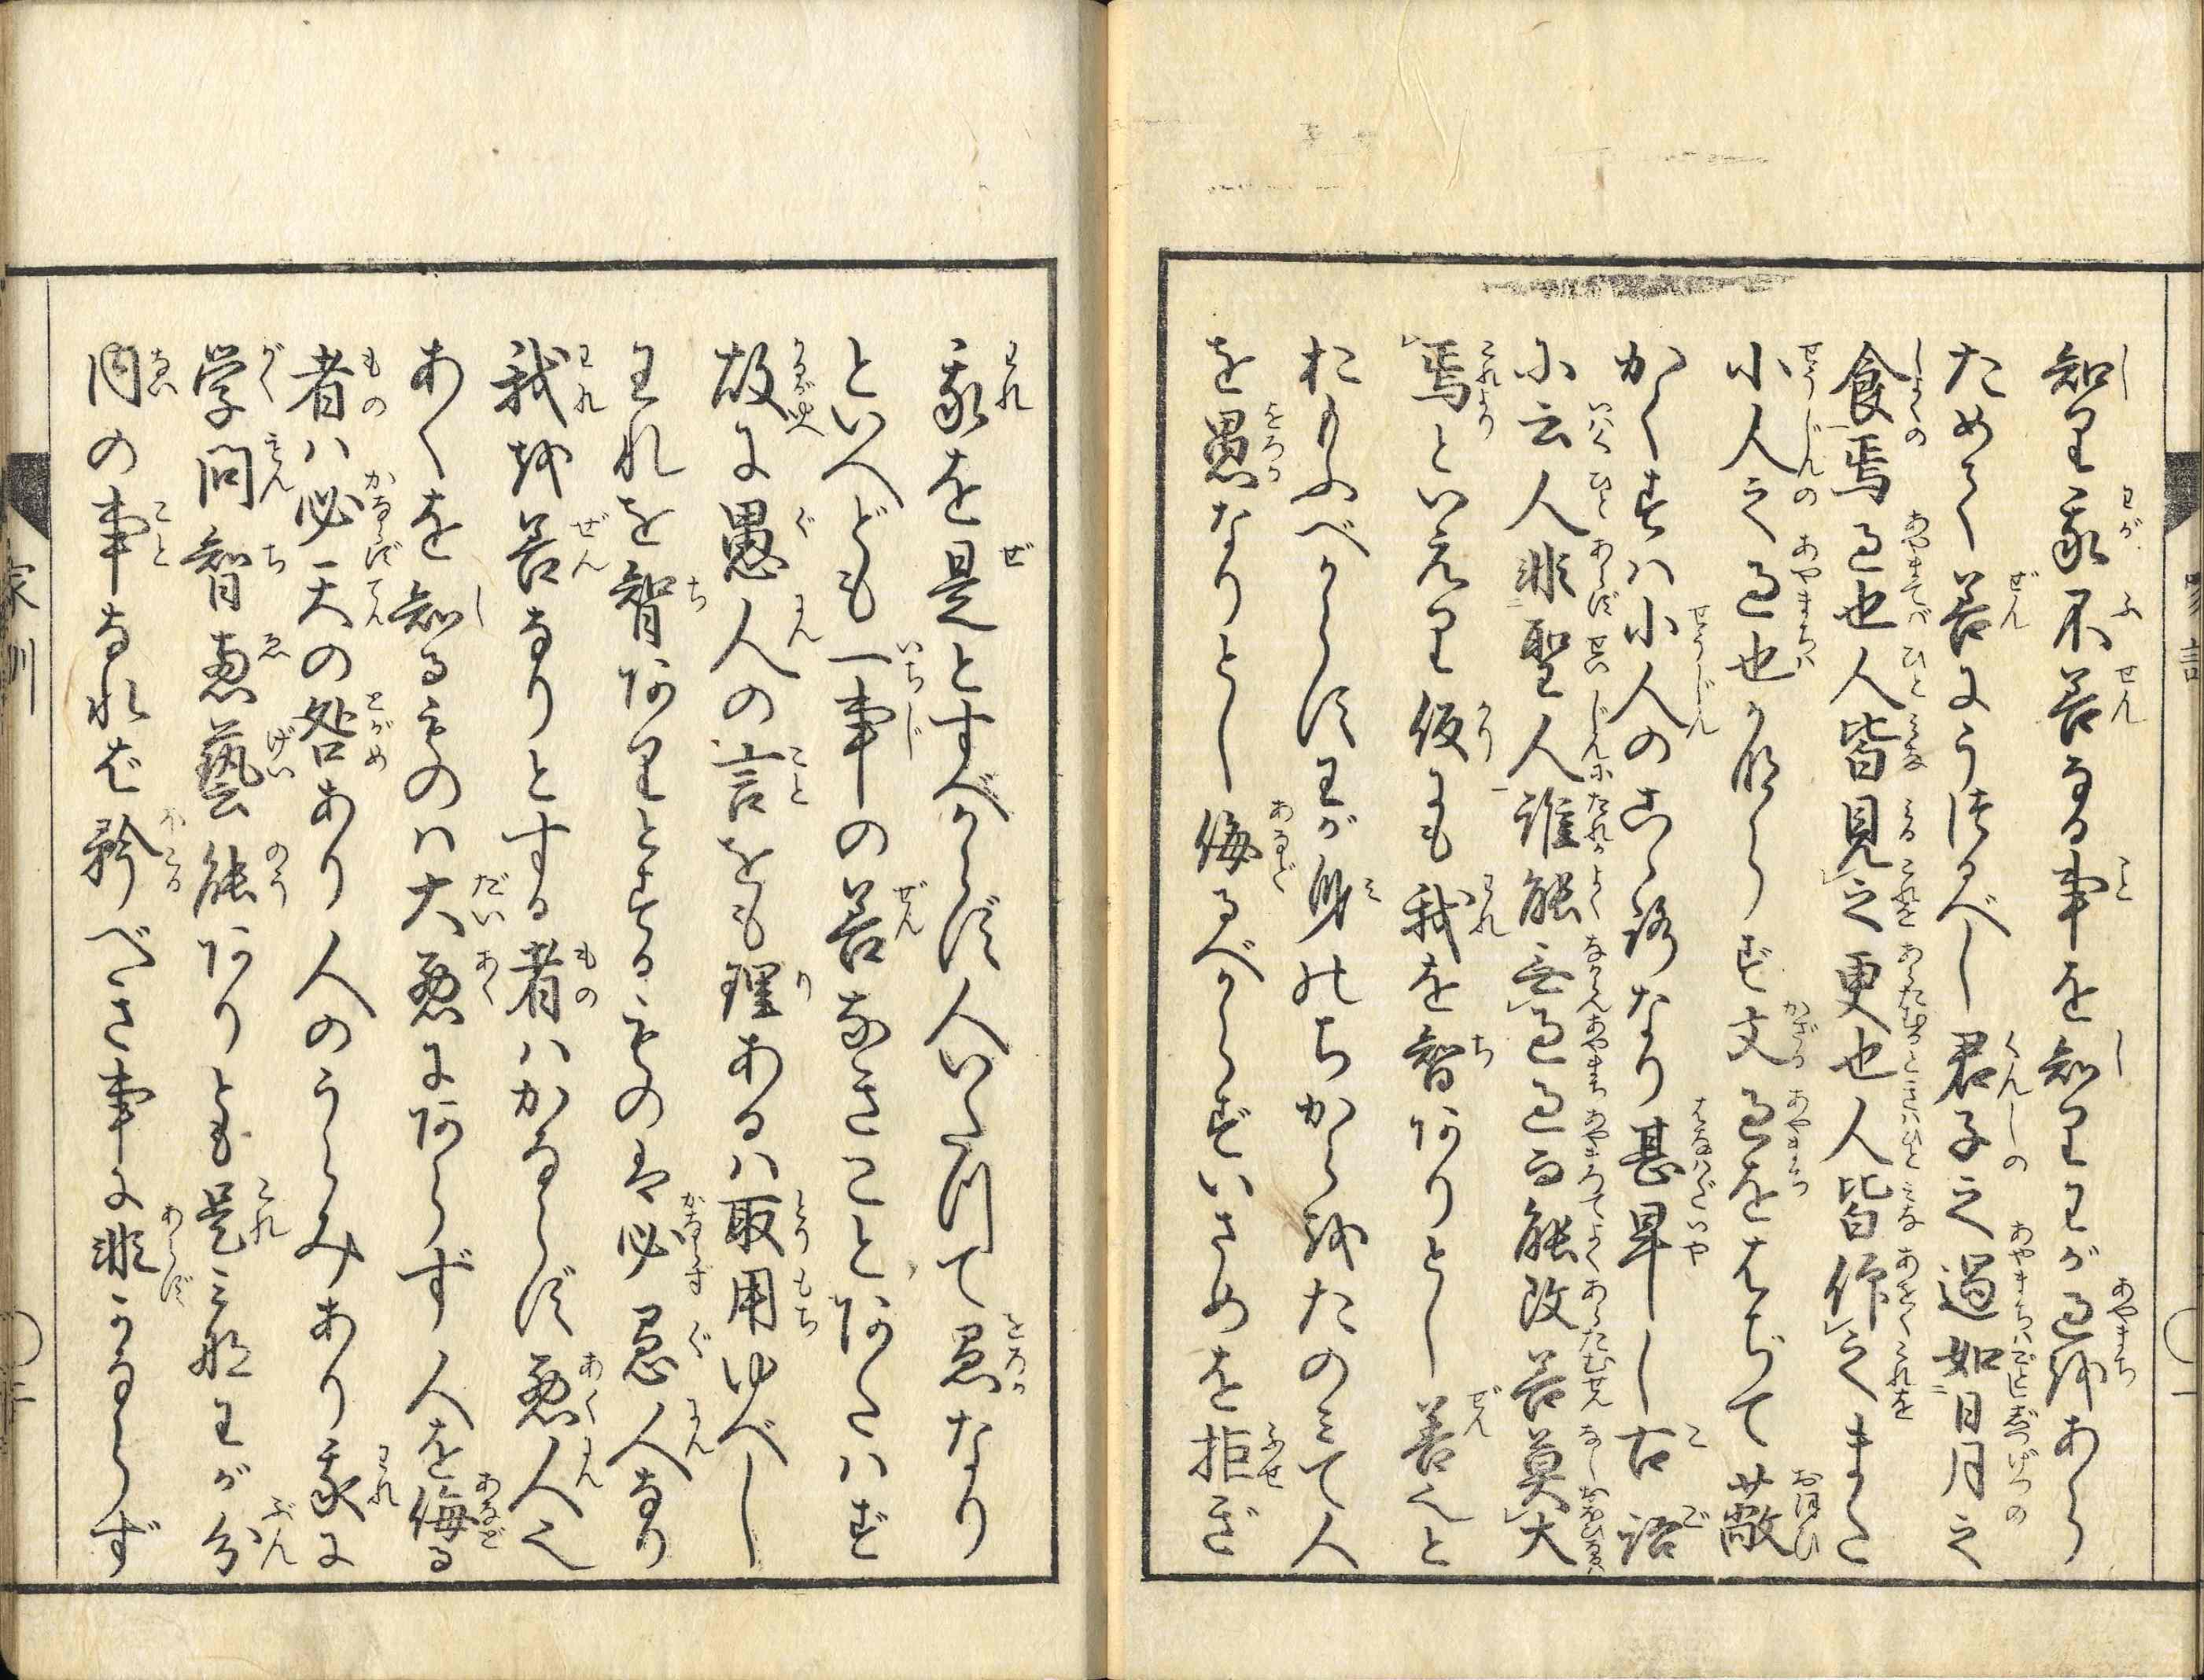 知り我不善なる事を知りわが過をあら
ためて善にうつるべし君子之過如日月之
食焉過也人皆見之更也人皆作之また
小人之過也かならず文過をはぢて蔽
かくすハ小人のこゝろなり甚卑し古語
に云人非聖人誰能無過過而能改善莫大
焉といえり仮にも我を智ありとし善人と
おもふべからずわが身のちからをたのミて人
を愚なりとし侮るべからずいさめを拒ぎ
我を是とすべからず人いたつて愚なり
といへども一事の善なきことあたハず
故に愚人の言をも理あるハ取用ゆべし
われを智ありとするものは必愚人なり
我を善なりとする者ハかならず悪人也
あくを知るものハ大悪にあらず人を侮る
者ハ必天の咎あり人のうらみあり我に
学問智恵藝能ありとも是ミなわが分
内の事なれば矜べき事に非かならず
家訓